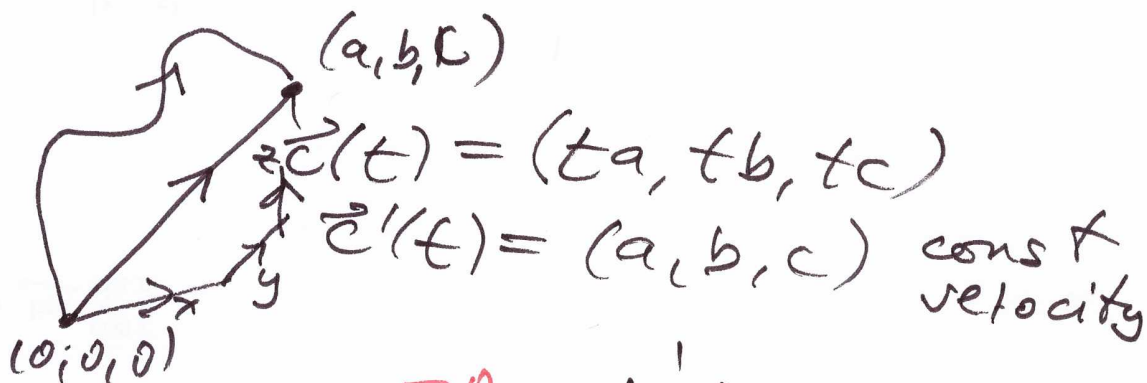 (a, b, c)
z
c⃗(t) = (ta, tb, tc)
c⃗'(t) = (a, b, c) const
velocity
y
x
(0, 0, 0)